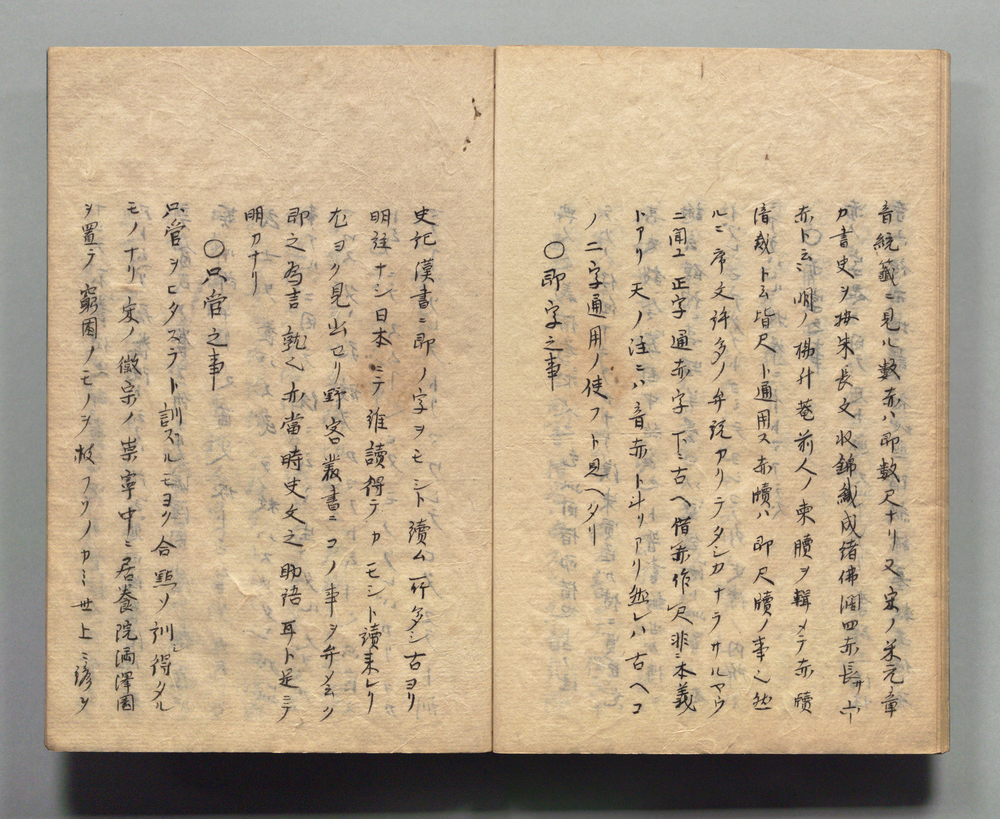 音統籤ニ見ル数赤ハ即数尺ナリ又宋ノ米元章
カ書史ヲ按朱長文収錦織成諸佛闊四赤長サ六
赤ト云ニ明ノ楊升菴前人ノ柬牘ヲ輯メテ赤牘
清裁ト云皆尺ト通用ス赤牘ハ即尺牘ノ事也然
ルニ序文許多ノ弁説アリテタシカナラサルヤウ
ニ聞ユ正字通赤ノ字下ニ古ヘ借赤作尺非ニ本義
トアリ天ノ注ニハ音赤ト斗リアリ然レハ古ヘコ
ノ二字通用ノ使フト見ヘタリ
〇即字之事
史記漢書ニ即ノ字ヲモシト讀ム所多シ古ヨリ
明註ナシ日本ニテ誰讀得テカモシト讀来レリ
尤ヨク見出セリ野客叢書ニコノ事ヲ弁メ云ク
即之為言孰ヘ亦當時史文之助語耳ト是ニテ
明カナリ
〇只管之事
只管ヲヒタスラト訓スルモヨリ合點ノ訓シ得タル
モノナリ宋ノ徽宗ノ崇寧中ニ居養院漏澤園
ヲ置テ窮困ノモノヲ救フリノカミ世上ニ諺ヲ